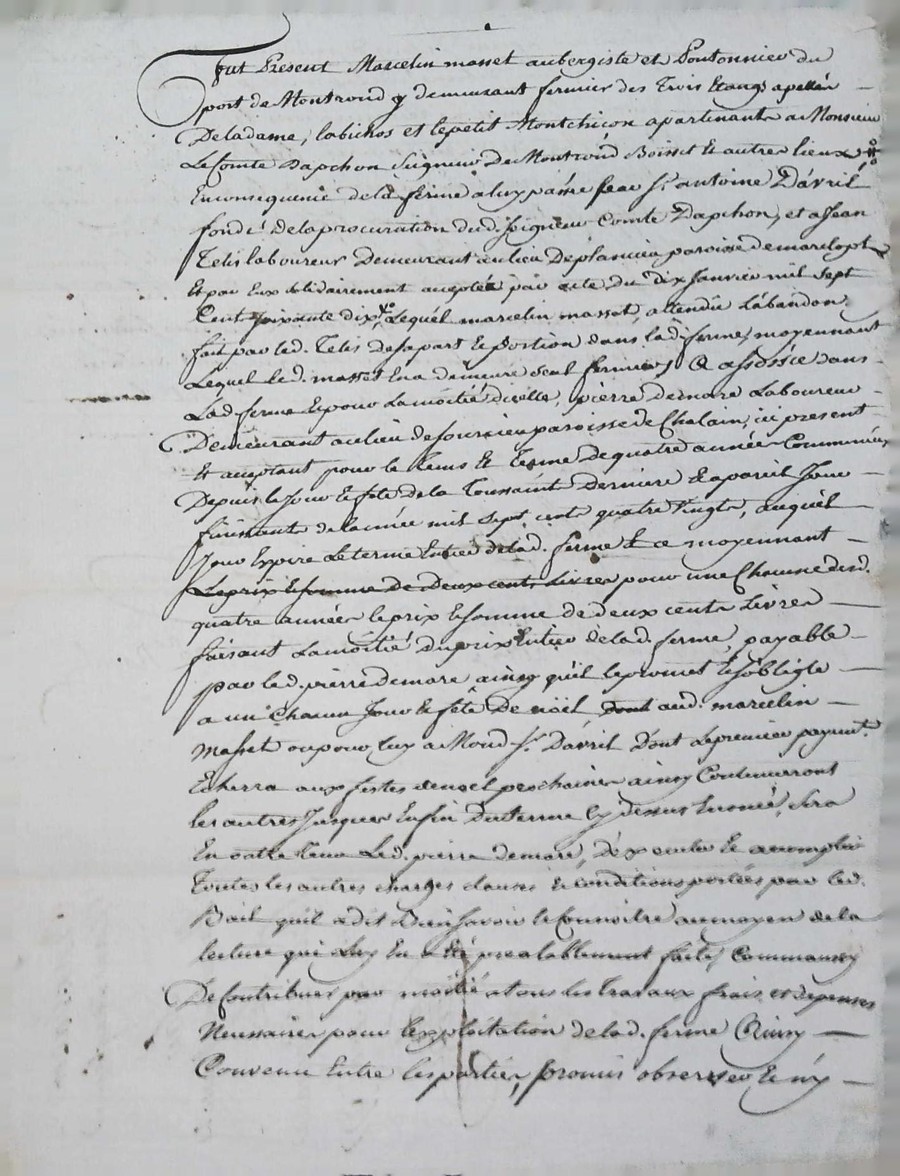 fut Présent Marcelin masset aubergiste et Pontonnier du
port de Montrond y demeurant fermier des Trois Etangs apellés
Deladame, labichos et lepetit Montchicon apartinants a Monsieur
Le Comte Dapchon Seigneur De Montrond Boisset & autres lieux
Enconsequence dela ferme aluy passée par Sr. antoine Davril
fondé delaprocuration dud. Seigneur Comte Dapchon, et a Jean
Telis laboureur Demeurant aulieu Deplancieu paroisse demarclopt
Et par Eux solidairement acceptée par acte du dix Janvier mil sept
Cent soixante dix, Lequel marcelin masset, attendu Labandon
fait par led. Telis desapart & portion dans lad. ferme, moyennant
Lequel led. masset Ena demeuré seul fermier, a assossié dans
Lad. ferme & pour Lamoitié dicelle, pierre demare Laboureur
Demeurant aulieu de paroisse de Chalain, ici present
Et aceptant pour le tems & terme dequatre années Commencées
Depuis le Jour & fête dela Toussaint Derniere & apareil Jour
finissant delannée mil sept cents quatre Vingts, auquel
Jour Expire Leterme Entier delad. ferme & ce moyennant
Leprix & somme De Deux cents Livres pour une Chacune desd.
quatre années leprix & somme de deux cents Livres
faisant Lamoitié duprix Entier delad. ferme, payable
par led. pierre Demare ainsy quil lepromet & soblige
a un Chacun Jour & fête De noël Dont aud. marcelin
Masset oupour luy a Mond. Sr. Davril Dont lepremier payemt.
Echerra aux festes denoel prochaines ainsy Continueront
les autres Jusques Enfin Duterme cy dessus Enoncé, sera
En outre tenu Led. pierre demare, Déxecuter & accomplir
toutes les autres charges clauses & conditions portées par led.
Bail quil a dit Bien savoir & Connoitre aumoyen dela
lecture qui Luy En a été prealablement faite, Commaussy
De Contribuer par moitié atous les travaux frais et depenses
Necessaires pour Lexploitation delad. ferme Ainsy
Convenu Entre lesparties, promis observer & ny